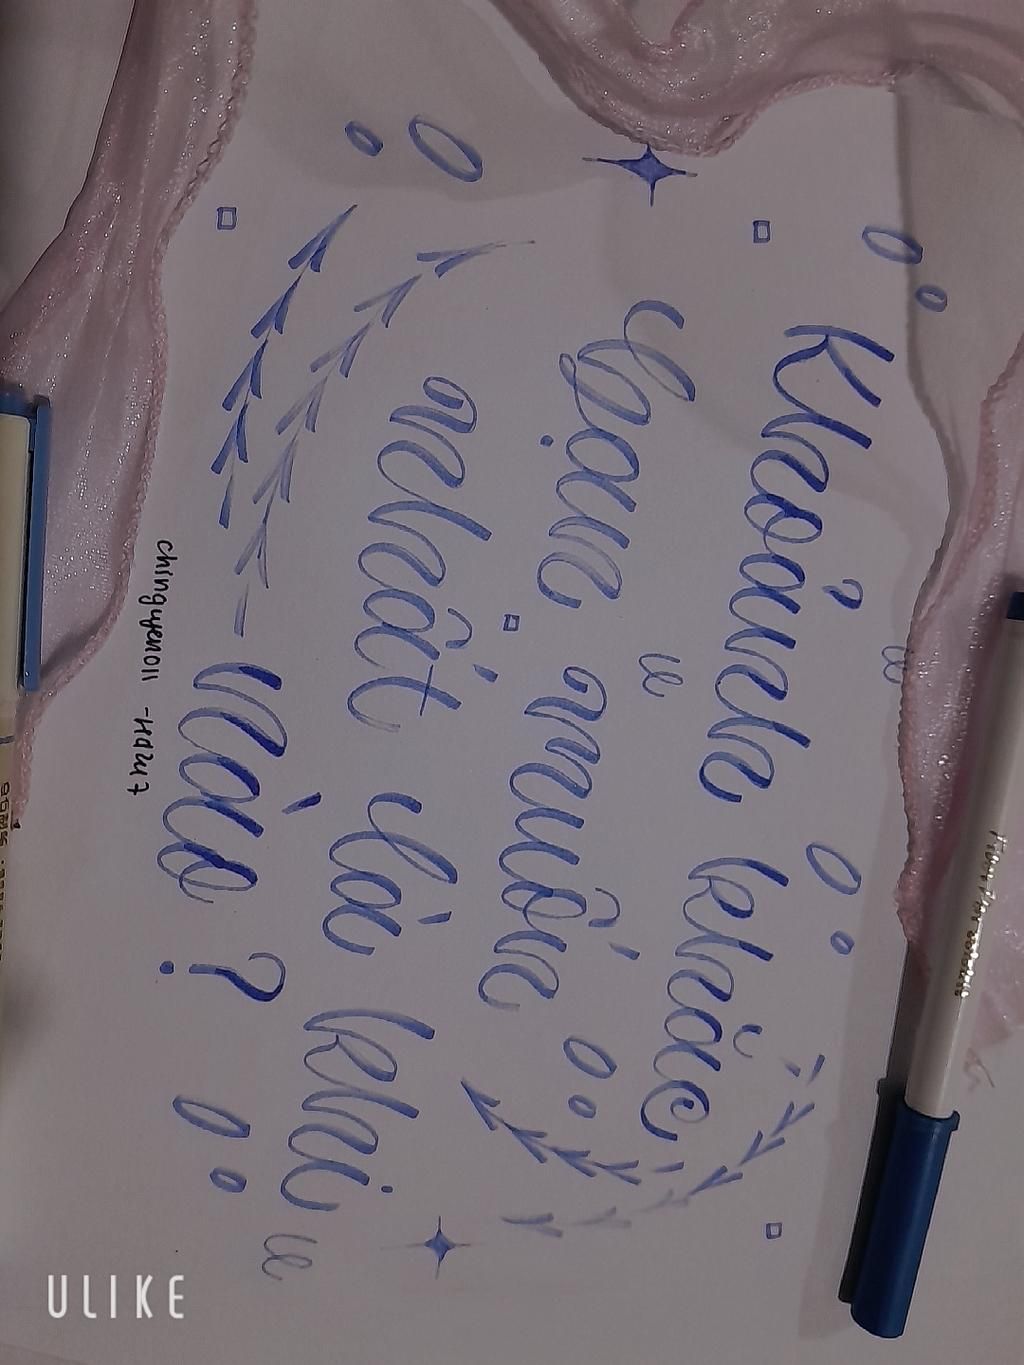 Khoảnh khắc
bạn muốn
nhất là khi
nào?
chinguyen011 - Hazu7
ULIKE